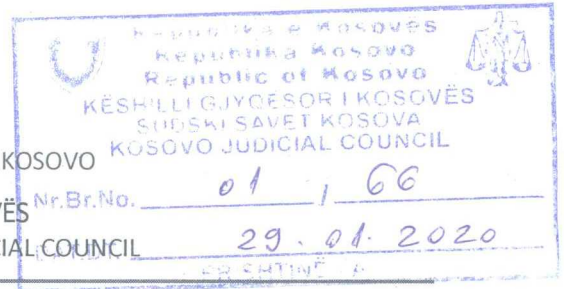 Republika e Kosovës
Republika Kosovo
Republic of Kosovo
KËSHILLI GJYQËSOR I KOSOVËS
SUDSKI SAVET KOSOVA
KOSOVO JUDICIAL COUNCIL
KOSOVO
Nr.Br.No. 01 / 66
VËS
IAL COUNCIL
29.01.2020
PRISHTINË